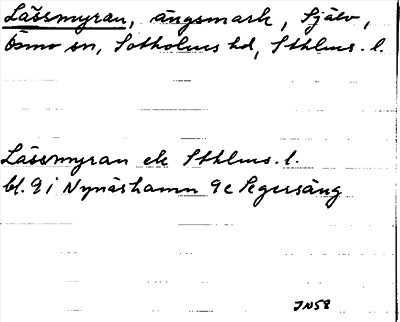 Lässmyran, ängsmark, Själv,
Ösmo sn, Sotholms hd, Sthlms. l.
Lässmyran ek Sthlms. l.
bl. 9 i Nynäshamn 9c Segersäng
JN58